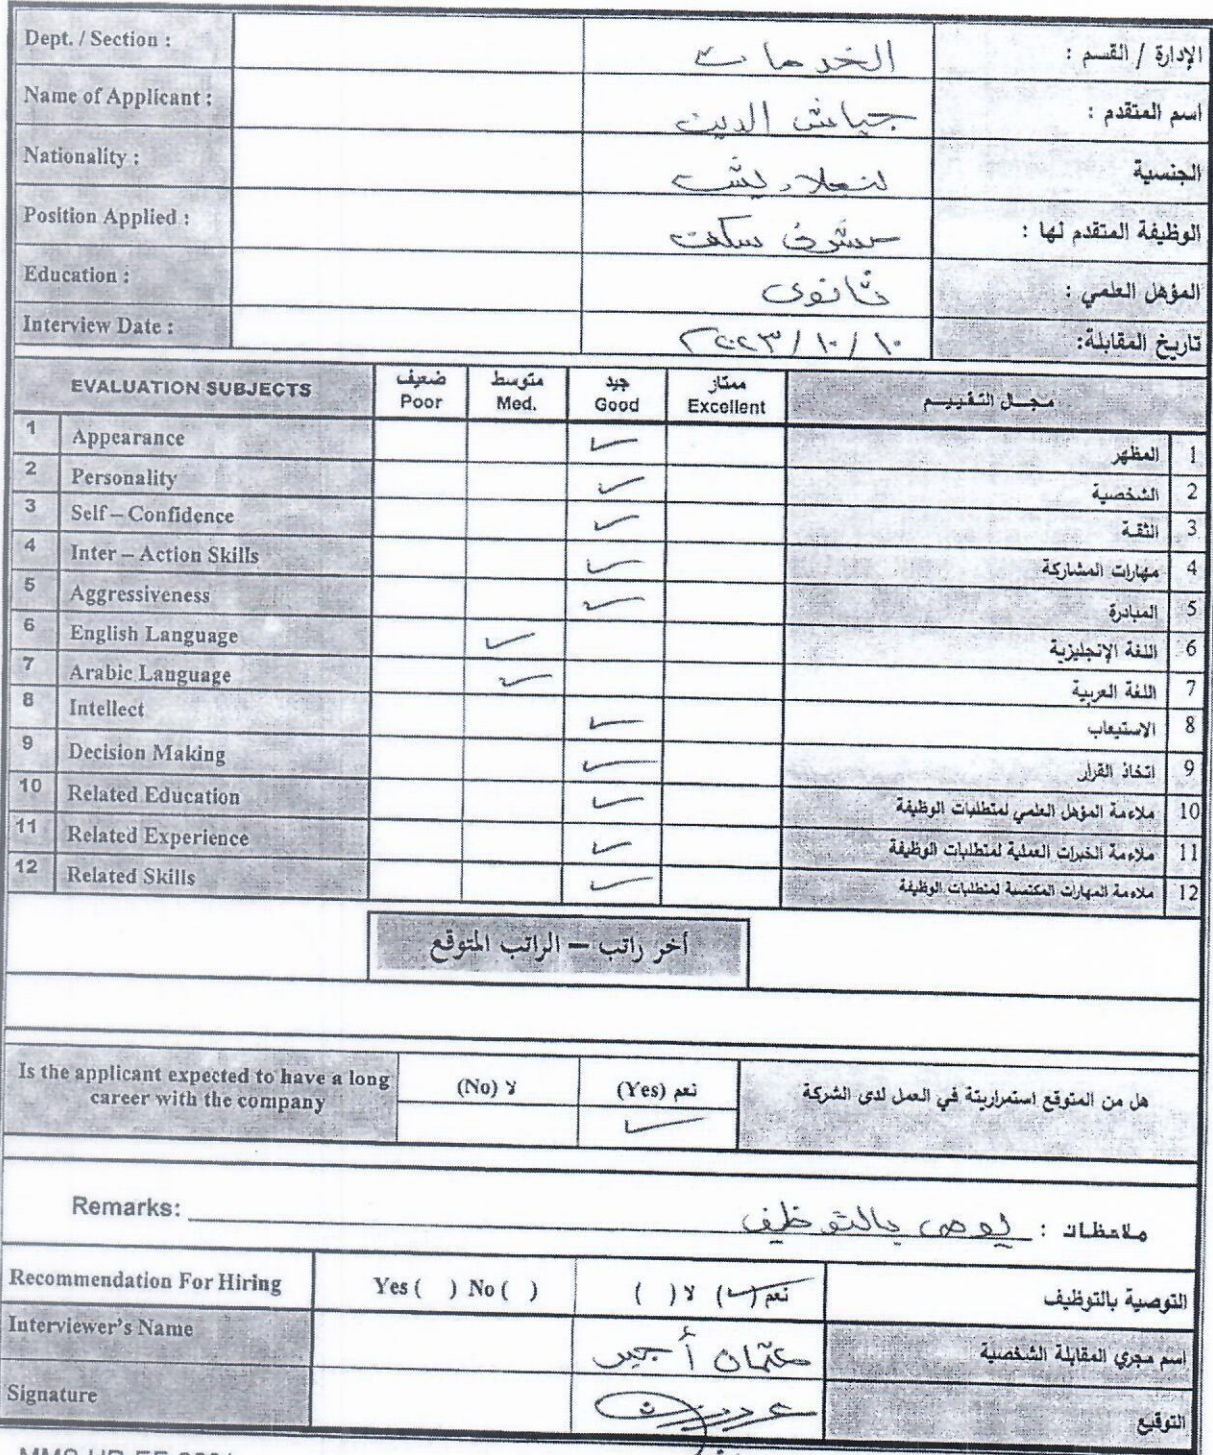 Dept. / Section : الخدمات الإدارة / القسم :
Name of Applicant : الدين اسم المتقدم :
Nationality : الجنسية
Position Applied : سكن الوظيفة المتقدم لها :
Education : ثانوى المؤهل العلمي :
Interview Date : ٢٠٢٣/١٠/١٠ تاريخ المقابلة:
EVALUATION SUBJECTS ضعيف Poor متوسط Med. جيد Good ممتاز Excellent مجال التقييم
1 Appearance ✓ المظهر 1
2 Personality ✓ الشخصية 2
3 Self – Confidence ✓ الثقة 3
4 Inter – Action Skills ✓ مهارات المشاركة 4
5 Aggressiveness ✓ المبادرة 5
6 English Language ✓ اللغة الإنجليزية 6
7 Arabic Language ✓ اللغة العربية 7
8 Intellect ✓ الاستيعاب 8
9 Decision Making ✓ اتخاذ القرار 9
10 Related Education ✓ ملاءمة المؤهل العلمي لمتطلبات الوظيفة 10
11 Related Experience ✓ ملاءمة الخبرات العملية لمتطلبات الوظيفة 11
12 Related Skills ✓ ملاءمة المهارات المكتسبة لمتطلبات الوظيفة 12
أخر راتب – الراتب المتوقع
Is the applicant expected to have a long career with the company لا (No) نعم (Yes) ✓ هل من المتوقع استمراريتة في العمل لدى الشركة
Remarks: ملاحظات : يوصى بالتوظيف
Recommendation For Hiring Yes ( ) No ( ) نعم (✓) لا ( ) التوصية بالتوظيف
Interviewer's Name عثمان اسم مجري المقابلة الشخصية
Signature التوقيع